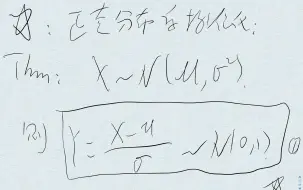 正态分布标准化:
Thm: X ~ N(μ, σ²)
则 Y = (X-μ)/σ ~ N(0,1) ①